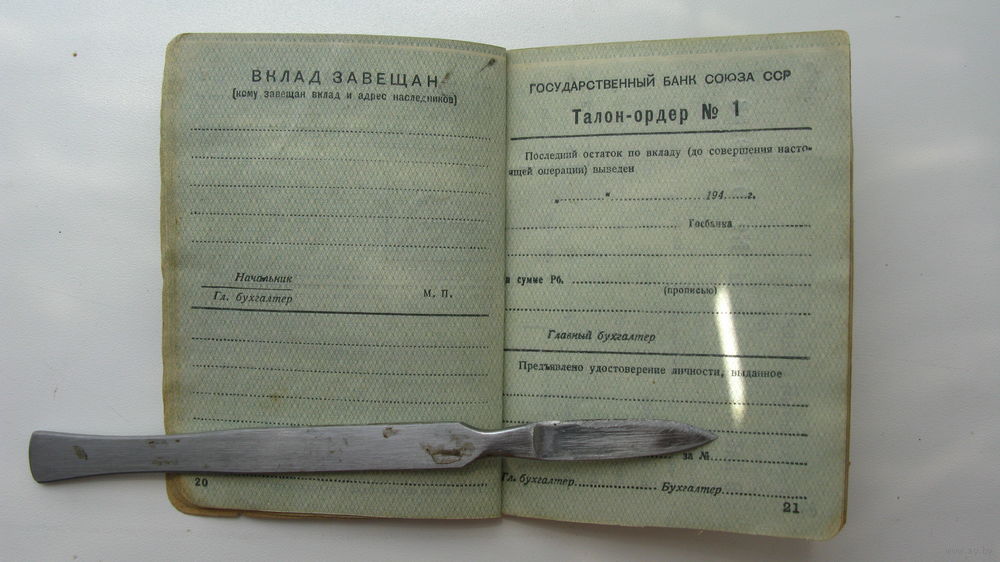 ВКЛАД ЗАВЕЩАН
(кому завещан вклад и адрес наследников)
Начальник
Гл. бухгалтер М. П.
20
ГОСУДАРСТВЕННЫЙ БАНК СОЮЗА ССР
Талон-ордер № 1
Последний остаток по вкладу (до совершения насто-
ящей операции) выведен
„..........“ ..........194......г.
Госбанка
в сумме Рб.
(прописью)
Главный бухгалтер
Предъявлено удостоверение личности, выданное
за №
Гл. бухгалтер Бухгалтер
21
www.ay.by